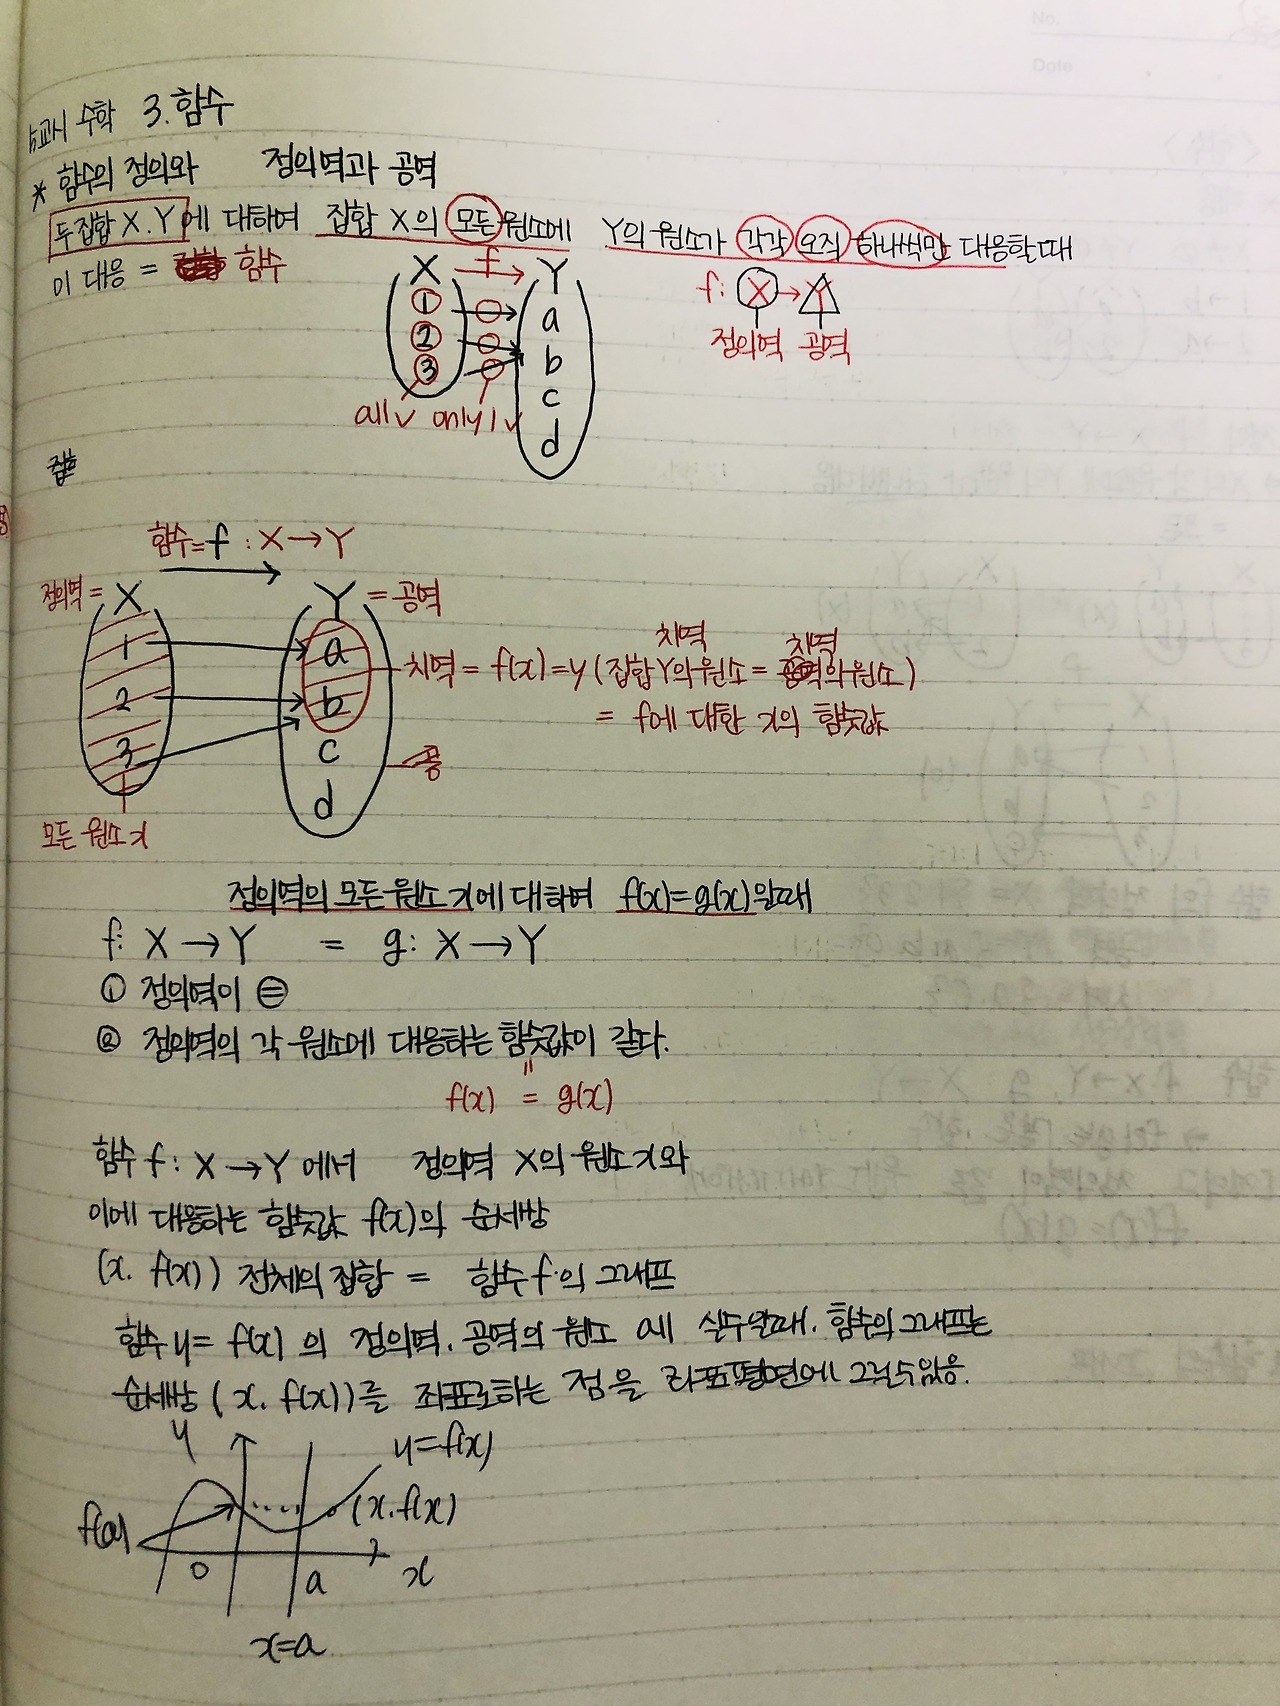 5교시 수학 3. 함수
* 함수의 정의와 정의역과 공역
두 집합 X. Y에 대하여 집합 X의 모든 원소에 Y의 원소가 각각 오직 하나씩만 대응할때
이 대응 = 함수
X f Y
f: X → Y
정의역 공역
1 a
2 b
3 c
d
all v only 1 v
집합
함수 = f : X → Y
정의역 = X Y = 공역
1 a
2 b
3 c
d
치역 치역
치역 = f(x) = y (집합 Y의 원소 = 공역의 원소)
= f에 대한 x의 함숫값
공
모든 원소 x
정의역의 모든 원소 x에 대하여 f(x)=g(x)일때
f: X → Y = g: X → Y
① 정의역이 =
② 정의역의 각 원소에 대응하는 함숫값이 같다.
f(x) = g(x)
함수 f : X → Y 에서 정의역 X의 원소 x와
이에 대응하는 함숫값 f(x)의 순서쌍
(x. f(x)) 전체의 집합 = 함수 f의 그래프
함수 y= f(x) 의 정의역. 공역의 원소 all 실수일때. 함수의 그래프는
순서쌍 (x. f(x))를 좌표로하는 점을 좌표평면에 그릴수있음.
y y=f(x)
f(a) (x.f(x))
0 a x
x=a